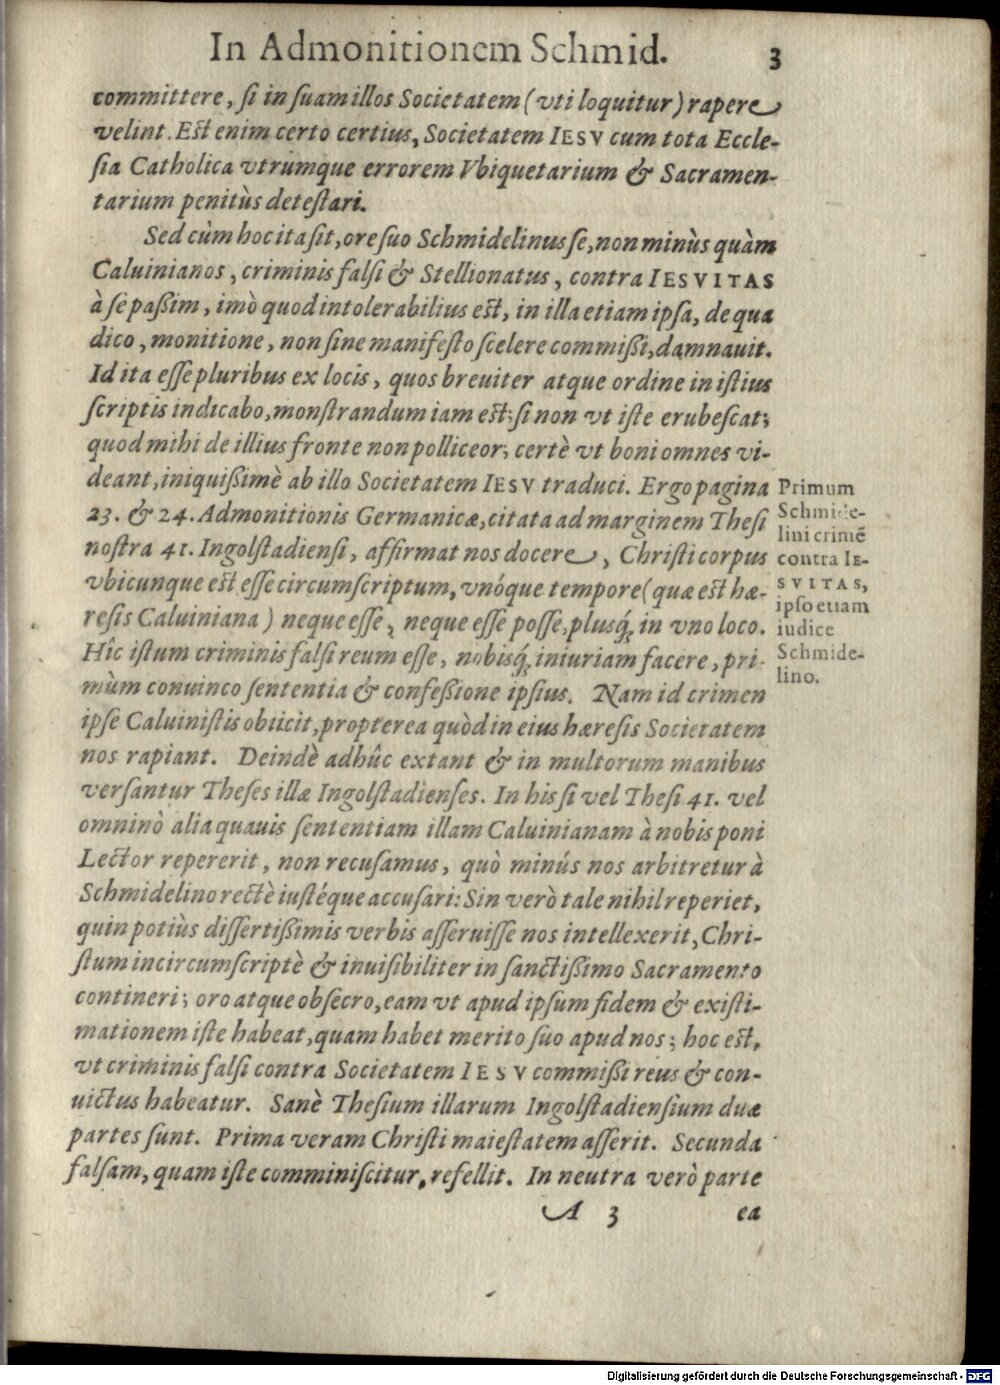 In Admonitionem Schmid. 3
committere, ſi in ſuam illos Societatem (vti loquitur) rapere
velint. Est enim certo certius, Societatem IESV cum tota Eccle-
ſia Catholica vtrumque errorem Vbiquetarium & Sacramen-
tarium penitùs detestari.
Sed cùm hoc ita ſit, ore ſuo Schmidelinus ſe, non minùs quàm
Caluinianos, criminis falſi & Stellionatus, contra IESVITAS
à ſe paßim, imò quod intolerabilius est, in illa etiam ipſa, de qua
dico, monitione, non ſine manifeſto ſcelere commißi, damnauit.
Id ita eſſe pluribus ex locis, quos breuiter atque ordine in iſtius
ſcriptis indicabo, monſtrandum iam est; ſi non vt iſte erubeſcat;
quod mihi de illius fronte non polliceor; certè vt boni omnes vi-
deant, iniquißimè ab illo Societatem IESV traduci. Ergo pagina
23. & 24. Admonitionis Germanicæ, citata ad marginem Theſi
noſtra 41. Ingolſtadienſi, affirmat nos docere, Chriſti corpus
vbicunque est eſſe circumſcriptum, vnóque tempore (quæ est hæ-
reſis Caluiniana) neque eſſe, neque eſſe poſſe, plusq́; in vno loco.
Hîc iſtum criminis falſi reum eſſe, nobisq́; iniuriam facere, pri-
mùm conuinco ſententia & confeßione ipſius. Nam id crimen
ipſe Caluiniſtis obiicit, propterea quòd in eius hæreſis Societatem
nos rapiant. Deindè adhûc extant & in multorum manibus
verſantur Theſes illæ Ingolſtadienſes. In his ſi vel Theſi 41. vel
omninò alia quauis ſententiam illam Caluinianam à nobis poni
Lector repererit, non recuſamus, quò minús nos arbitretur à
Schmidelino rectè iuſtéque accuſari: Sin verò tale nihil reperiet,
quin potiùs diſſertißimis verbis aſſeruiſſe nos intellexerit, Chri-
ſtum incircumſcriptè & inuiſibiliter in ſanctißimo Sacramento
contineri; oro atque obſecro, eam vt apud ipſum fidem & exiſti-
mationem iſte habeat, quam habet merito ſuo apud nos; hoc est,
vt criminis falſi contra Societatem IESV commißi reus & con-
uictus habeatur. Sanè Theſium illarum Ingolſtadienſium duæ
partes ſunt. Prima veram Chriſti maieſtatem aſſerit. Secunda
falſam, quam iſte comminiſcitur, refellit. In neutra verò parte
A 3 ea
Primum
Schmide-
lini crimē
contra IE-
SVITAS,
ipſo etiam
iudice
Schmide-
lino.
Digitalisierung gefördert durch die Deutsche Forschungsgemeinschaft - DFG